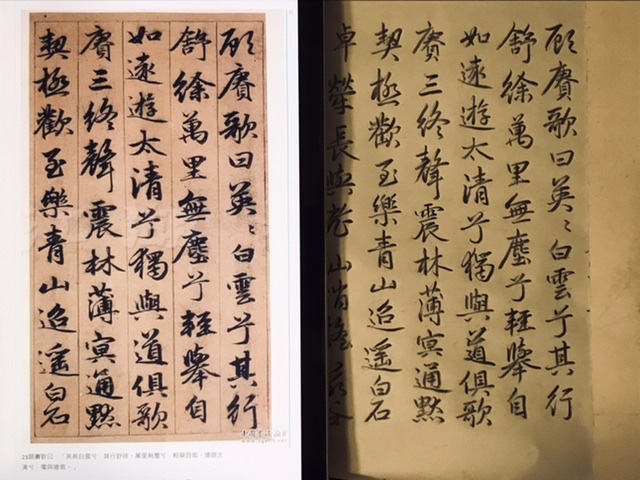 賡歌曰英〻白雲兮其行
舒徐萬里無塵兮輕舉自
如遠遊太清兮獨與道俱歌
賡三終聲震林薄冥通默
契極歡至樂青山迢遙白石
賡歌曰:「英英白雲兮,其行舒徐,萬里無塵兮,輕舉自如,遠遊太
清兮,獨與道俱。」
賡歌曰英〻白雲兮其行
舒徐萬里無塵兮輕舉自
如遠遊太清兮獨與道俱歌
賡三終聲震林薄冥通默
契極歡至樂青山迢遙白石
卓犖長與山